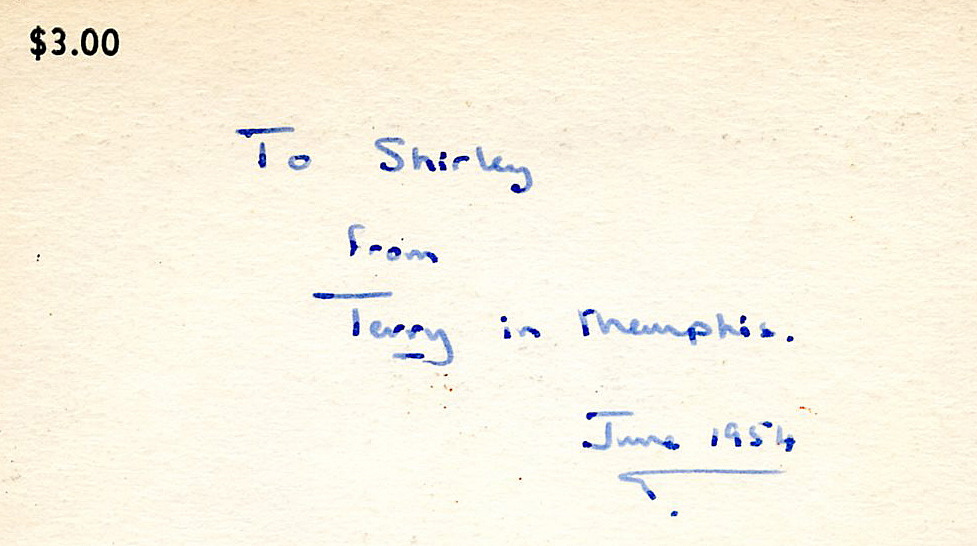 $3.00
To Shirley
From
Terry in Memphis.
June 1954